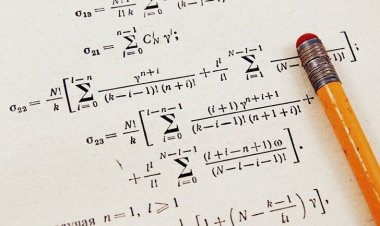 σ₁₃ = N!/(l! k)
σ₂₁ = Σ_{i=0}^{n-1} C^i_N γ^i;
σ₂₂ = N!/k [ Σ_{i=0}^{l-n} γ^{n+i}/((k-i-1)! (n+i)!) + l^l/l! Σ_{i=1}^{N-l-1} /(N-
σ₂₃ = N!/k [ Σ_{i=0}^{l-n-1} (i+1) γ^{n+i+1}/((k-i-1)! (n+1+i)!) +
+ l^l/l! Σ_{i=0}^{N-l-1} (l+i-n+1) ω/((N-l-i-1)!) ].
n = 1, l ⩾ 1
[ 1 + ( N - (k-1)/ ) γ ],